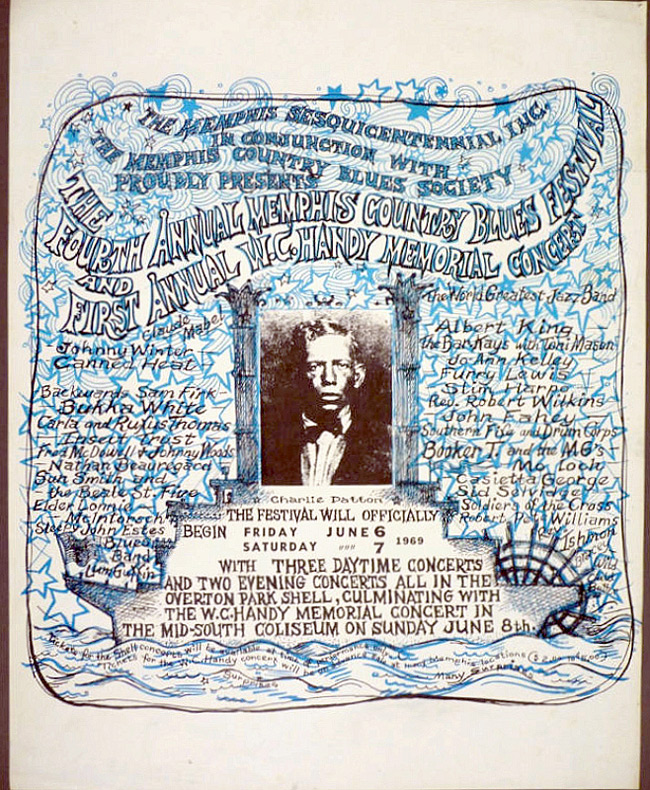 THE MEMPHIS SESQUICENTENNIAL INC.
IN CONJUNCTION WITH
THE MEMPHIS COUNTRY BLUES SOCIETY
PROUDLY PRESENTS
THE
FOURTH ANNUAL MEMPHIS COUNTRY BLUES FESTIVAL
AND
FIRST ANNUAL W.C. HANDY MEMORIAL CONCERT
Claude Mabel
Johnny Winter
Canned Heat
Backwards Sam Firk
Bukka White
Carla and Rufus Thomas
Insect Trust
Fred McDowell + Johnny Woods
Nathan Beauregard
Sun Smith and
the Beale St. Five
Elder Lonnie
McIntorsch
Sleepy John Estes
Band
The World Greatest Jazz Band
Albert King
the Bar-Kays with Toni Mason
Jo Ann Kelley
Furry Lewis
Slim Harpo
Rev. Robert Wilkins
John Fahey
Southern Fife and Drum Corps
Booker T. and the MG's
Mo Loch
Casietta George
Sid Selvidge
Soldiers of the Cross
Robert Pete Williams
Charlie Patton
THE FESTIVAL WILL OFFICIALLY
BEGIN FRIDAY JUNE 6
SATURDAY """ 7 1969
WITH THREE DAYTIME CONCERTS
AND TWO EVENING CONCERTS ALL IN THE
OVERTON PARK SHELL, CULMINATING WITH
THE W.C. HANDY MEMORIAL CONCERT IN
THE MID-SOUTH COLISEUM ON SUNDAY JUNE 8th.
Tickets for the Shell concerts will be available at time of performance only.
Tickets for the W.C. Handy concert will be at many Memphis locations
Surprises
Many Surprises